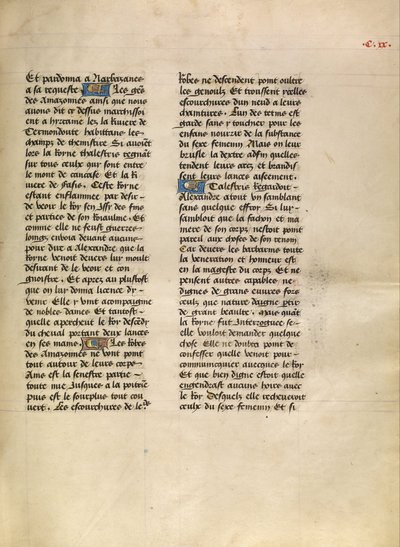 ·C· xx·
Et pardonna a Narbazanes
a sa requeste Les gens
des Amazonnes ainsi que nous
avons dit cy dessus marchissoi
ent a hircanie lez la Riviere de
Termondonte habittans les
champs de themistre Si avoiet
lors la Royne thalestris regnat
sur tous ceulx qui sont entre
le mont de caucase Et la Ri
viere de phasis Ceste Royne
estant enflammee par desir
de veoir le Roy son yssi des fins
et parties de son Roiaulme Et
comme elle ne feust gueres
longz envoia devant aucuns
pour dire a Alexandre que la
Royne venoit devers lui moult
desirant de le veoir et con
gnoistre Et apres au plustost
que on lui donna licence dy
venir Elle y vint acompaignie
de nobles dames Et tantost
quelle apercheut le Roy descedy
du cheval portant deux lances
en ses mains Les Robes
des Amazonnes ne vont point
tout autour de leurs corps
Ains est la senestre partie
toute nue Jusques a la poitrine
puis est le sourplus tout cou
vert Les escourchures de leurs
Robes ne descendent point oultre
les genoulz Et troussent icelles
escourchures dun neud a leurs
chaintures Lun des tettins est
garde sans y touchier pour les
enfans nourrir de la substance
du sexe femenin Mais on leur
brusle la dextre adfin quelles
tendent leurs arcz et brandis
sent leurs lances aiseement
Talestris Regardoit
Alexandre atout son samblant
sans quelque effroy Et lui
sambloit que la fachon et ma
niere de son corps nestoit point
pareil aux choses de son renom
Car devers les barbarins toute
la veneration et honneur est
en la mageste du corps Et ne
pensent autres capables ne
dignes de grans euvres fors
ceulx que nature daigne parer
de grant beaulte Mais quant
la Royne fut Interroguie se
elle vouloit demander quelque
chose Elle ne doubta point de
confesser quelle venoit pour
communicquier avecques le Roy
Et que bien digne estoit quelle
engendrast aucuns hoirs avec
le Roy Desquelz elle rechevroit
ceulx du sexe femenin Et si